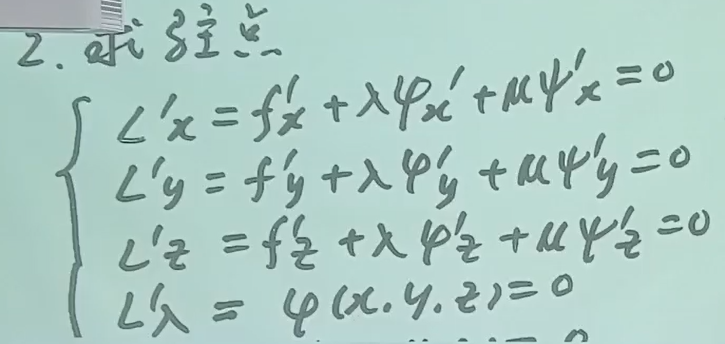 2. 求驻点
L'x = f'x + λφx' + μψ'x = 0
L'y = f'y + λφ'y + μψ'y = 0
L'z = f'z + λφ'z + μψ'z = 0
L'λ = φ(x.y.z) = 0